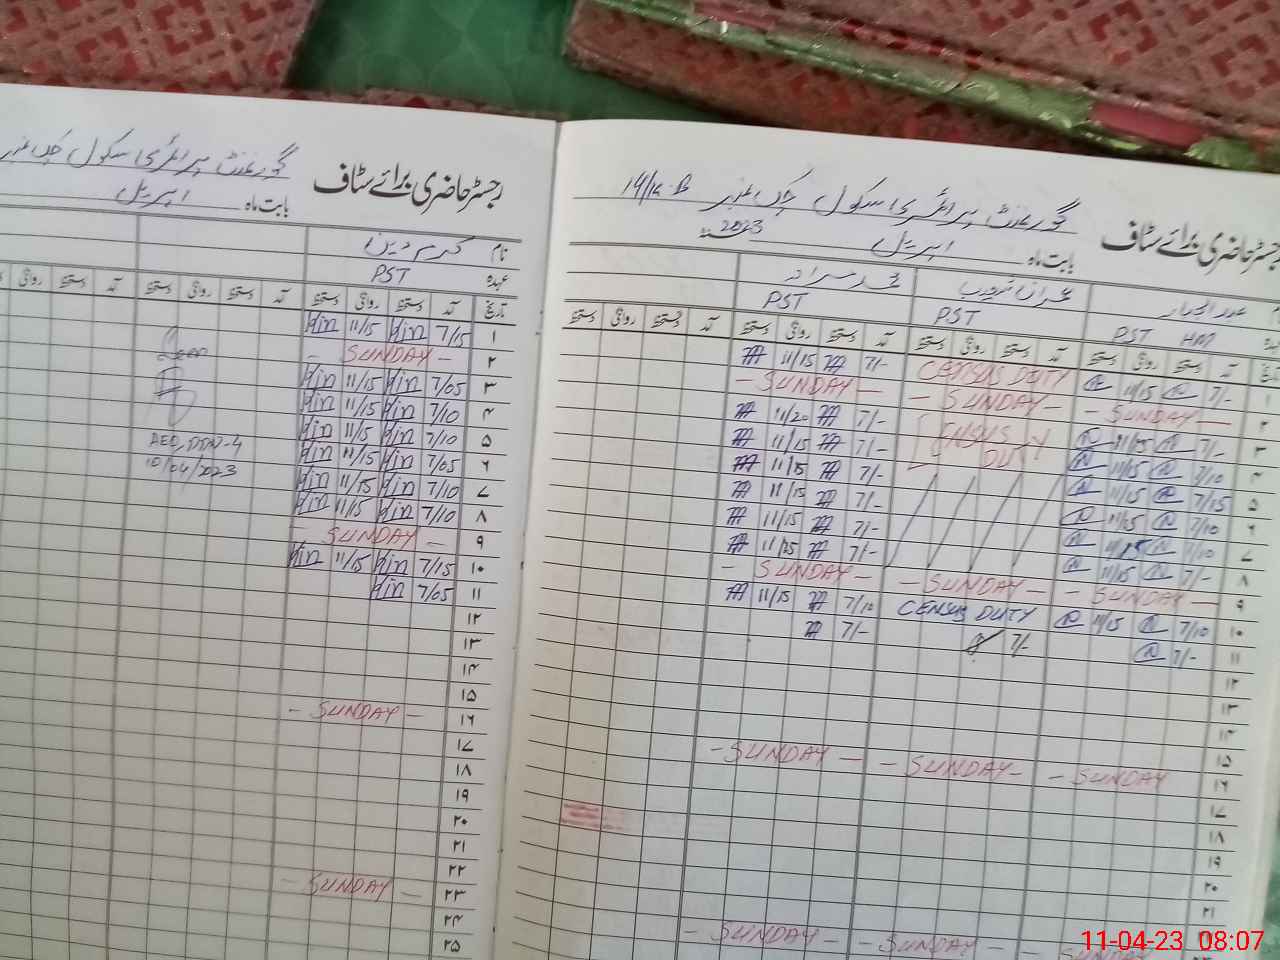 رجسٹر حاضری برائے سٹاف گورنمنٹ پرائمری سکول چک نمبر 14/14-B
بابت ماہ اپریل 2023
PST HM
عمران
PST
محمد
PST
آمد دستخط روانگی دستخط آمد دستخط روانگی دستخط آمد دستخط روانگی دستخط آمد دستخط روانگی دستخط
۱ 7/- 11/15 CENSUS DUTY 7/- 11/15
۲ - SUNDAY - - SUNDAY - - SUNDAY -
۳ 7/- 11/15 CENSUS DUTY 7/- 11/20
۴ 7/10 11/15 7/- 11/15
۵ 7/15 11/15 7/- 11/15
۶ 7/10 11/15 7/- 11/15
۷ 7/10 11/15 7/- 11/15
۸ 7/- 11/15 7/- 11/25
۹ - SUNDAY - - SUNDAY - - SUNDAY -
۱۰ 7/10 11/15 CENSUS DUTY 7/10 11/15
۱۱ 7/- 7/- 7/-
۱۲
۱۳
۱۴
۱۵
۱۶ - SUNDAY - - SUNDAY - - SUNDAY
۱۷
۱۸
۱۹
۲۰
۲۱
- SUNDAY - - SUNDAY -
رجسٹر حاضری برائے سٹاف گورنمنٹ پرائمری سکول چک نمبر
بابت ماہ اپریل
نام کرم دین
عہدہ PST
تاریخ آمد دستخط روانگی دستخط آمد دستخط روانگی دستخط آمد دستخط روانگی
۱ 7/15 11/15
۲ - SUNDAY -
۳ 7/05 11/15
۴ 7/10 11/15
۵ 7/10 11/15
۶ 7/05 11/15
۷ 7/10 11/15
۸ 7/10 11/15
۹ - SUNDAY -
۱۰ 7/15 11/15
۱۱ 7/05
۱۲
۱۳
۱۴
۱۵
۱۶ - SUNDAY -
۱۷
۱۸
۱۹
۲۰
۲۱
۲۲
۲۳ - SUNDAY -
۲۴
۲۵
10/04/2023
11-04-23 08:07